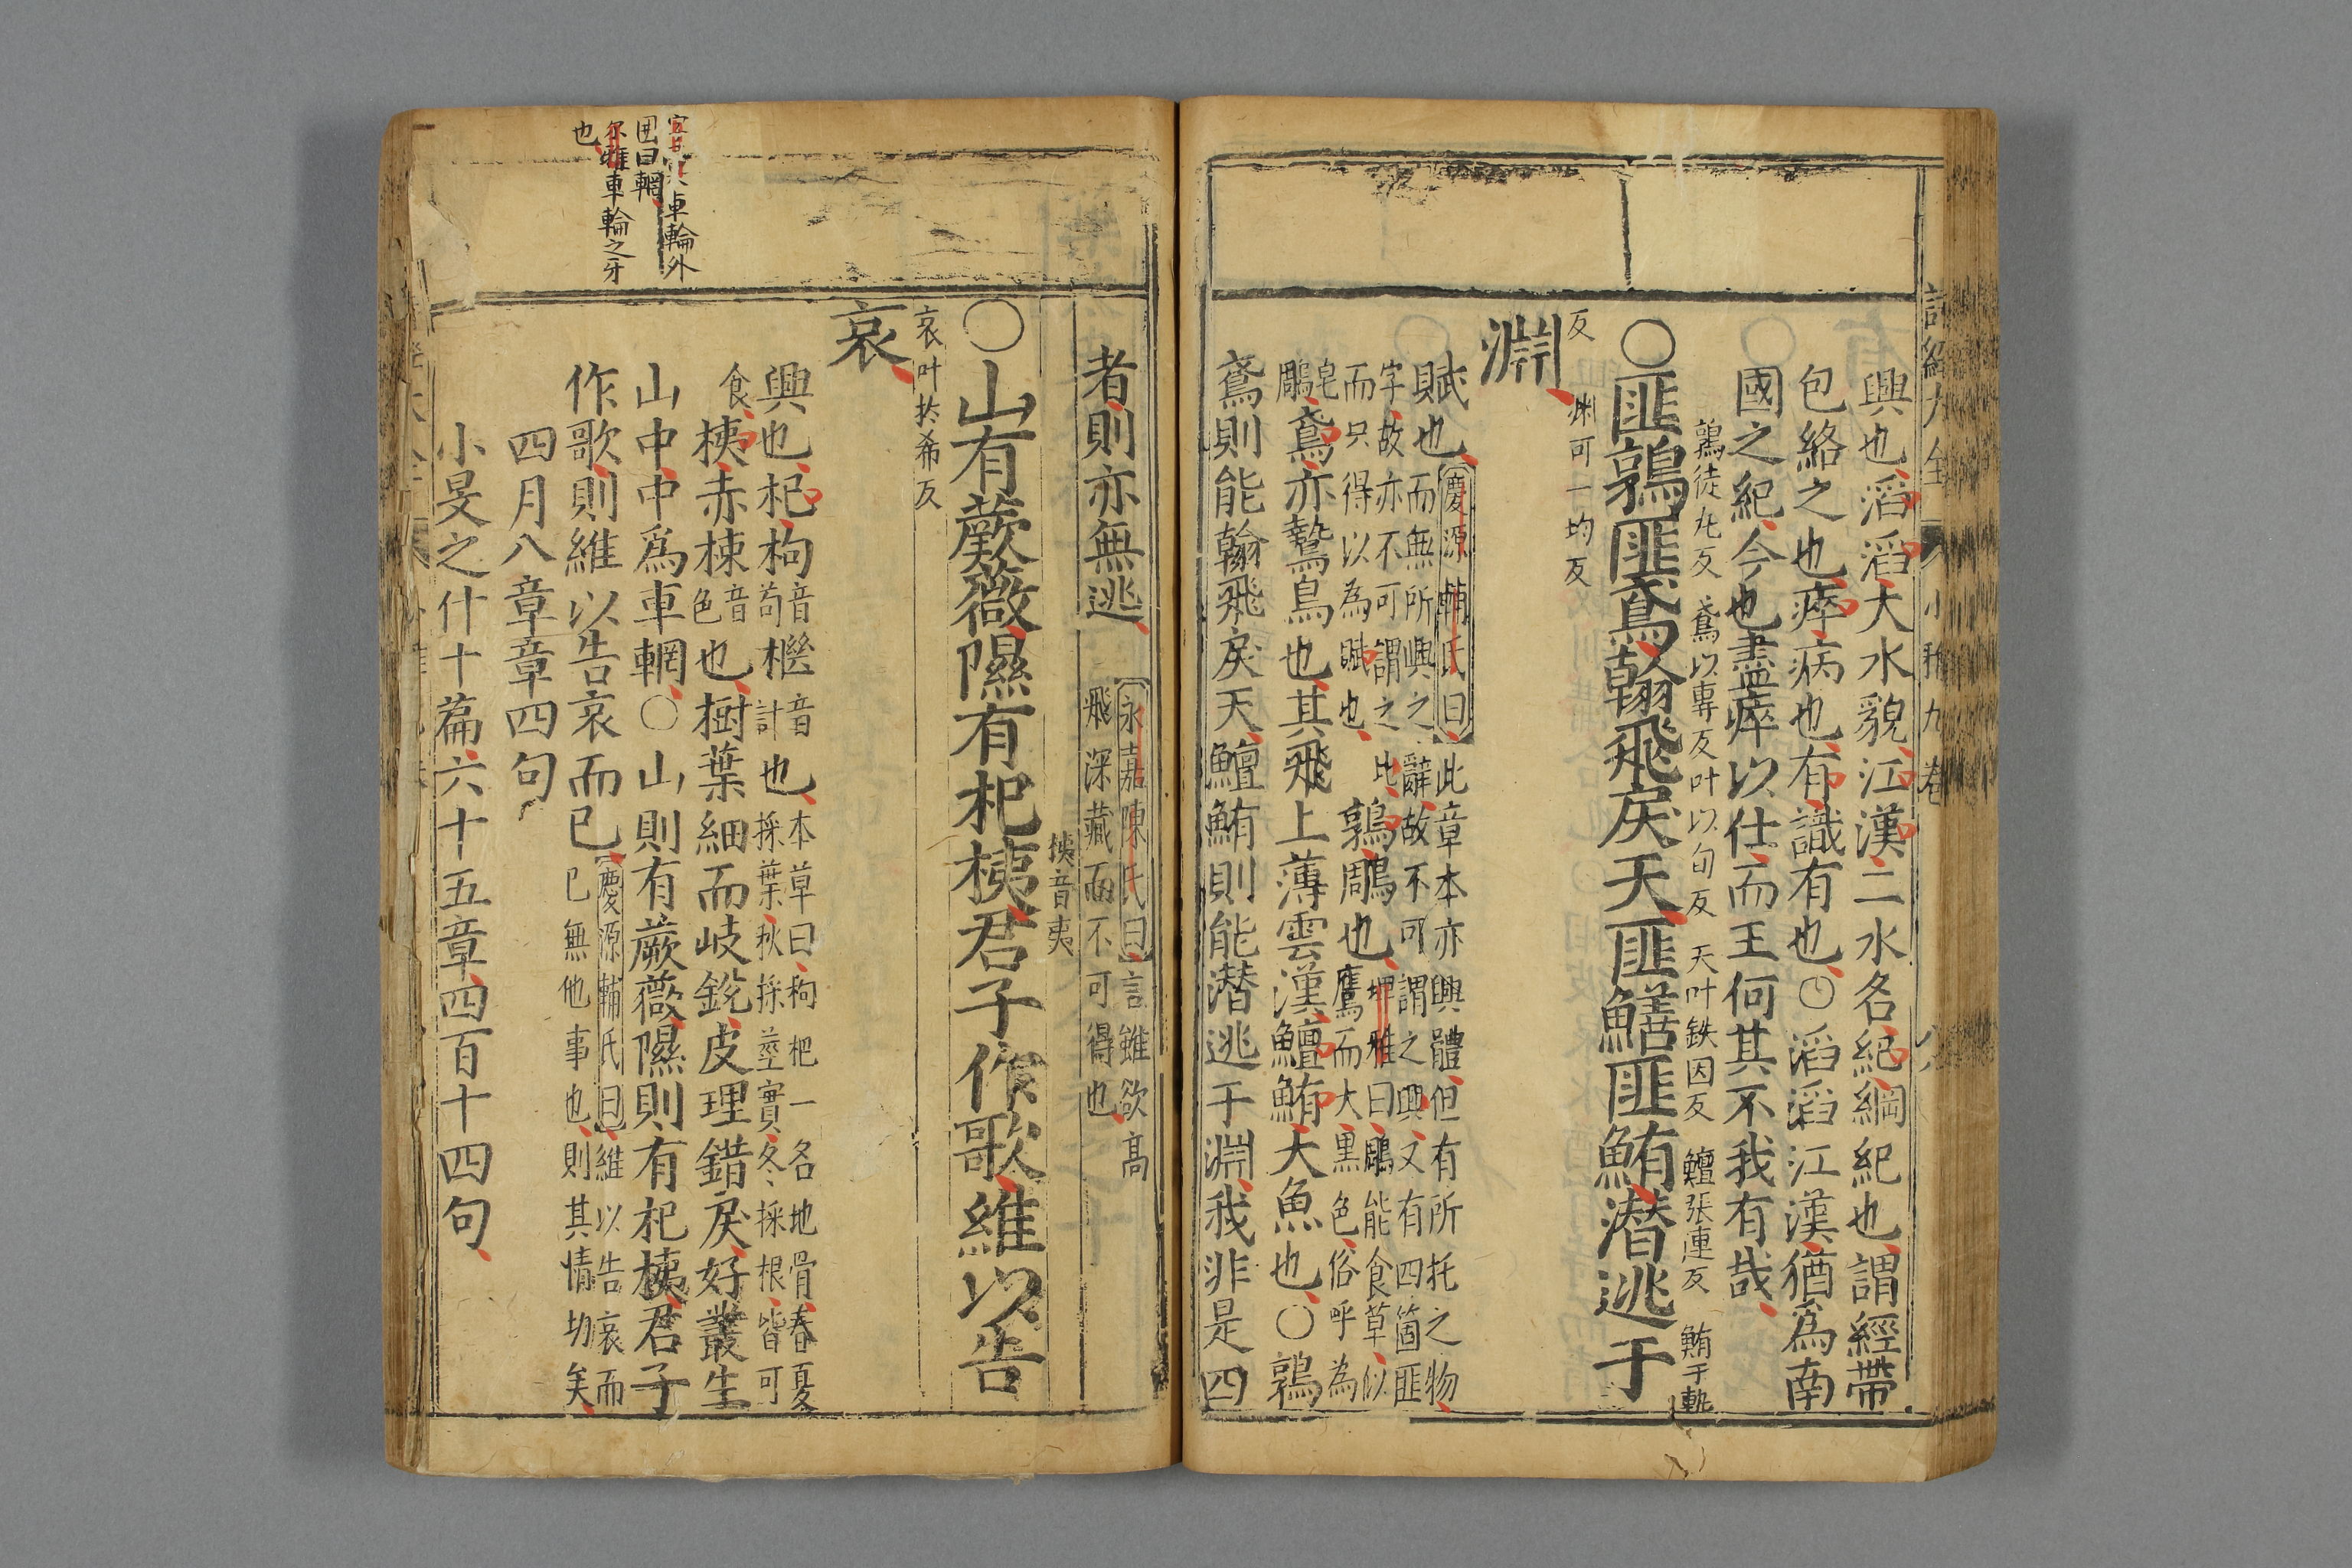 詩經大全
小雅九卷
興也滔滔大水貌江漢二水名紀綱紀也謂經帶
包絡之也瘁病也有識有也○滔滔江漢猶爲南
國之紀今也盡瘁以仕而王何其不我有哉
鶉徒丸反 鳶以專反叶以旬反 天叶鉄因反 鱣張連反 鮪于軌
○匪鶉匪鳶翰飛戾天匪鱔匪鮪潛逃于
反 淵叶一均反
淵
賦也慶源輔氏曰此章本亦興體但有所托之物
而無所興之辭故不可謂之興又有四箇匪
字故亦不可謂之比
而只得以為賦也鶉鵰也埤雅曰鵰能食草似
鷹而大黒色俗呼為
皂
鵰鳶亦鷙鳥也其飛上薄雲漢鱣鮪大魚也○鶉
鳶則能翰飛戾天鱣鮪則能潛逃于淵我非是四
者則亦無逃永嘉陳氏曰言雖欲髙
飛深藏而不可得也
桋音夷
○山有蕨薇隰有杞桋君子作歌維以告
哀叶於希反
哀
興也杞枸音
苟檵音
計也本草曰枸杞一名地骨春夏
採葉秋採莖實冬採根皆可
食桋赤栜音
色也樹葉細而岐銳皮理錯戾好叢生
山中中爲車輞○山則有蕨薇隰則有杞桋君子
作歌則維以告哀而已慶源輔氏曰維以告哀而
已無他事也則其情切矣
四月八章章四句
小旻之什十篇六十五章四百十四句
車輪外
囲曰輞
尔雅車輪之牙
也